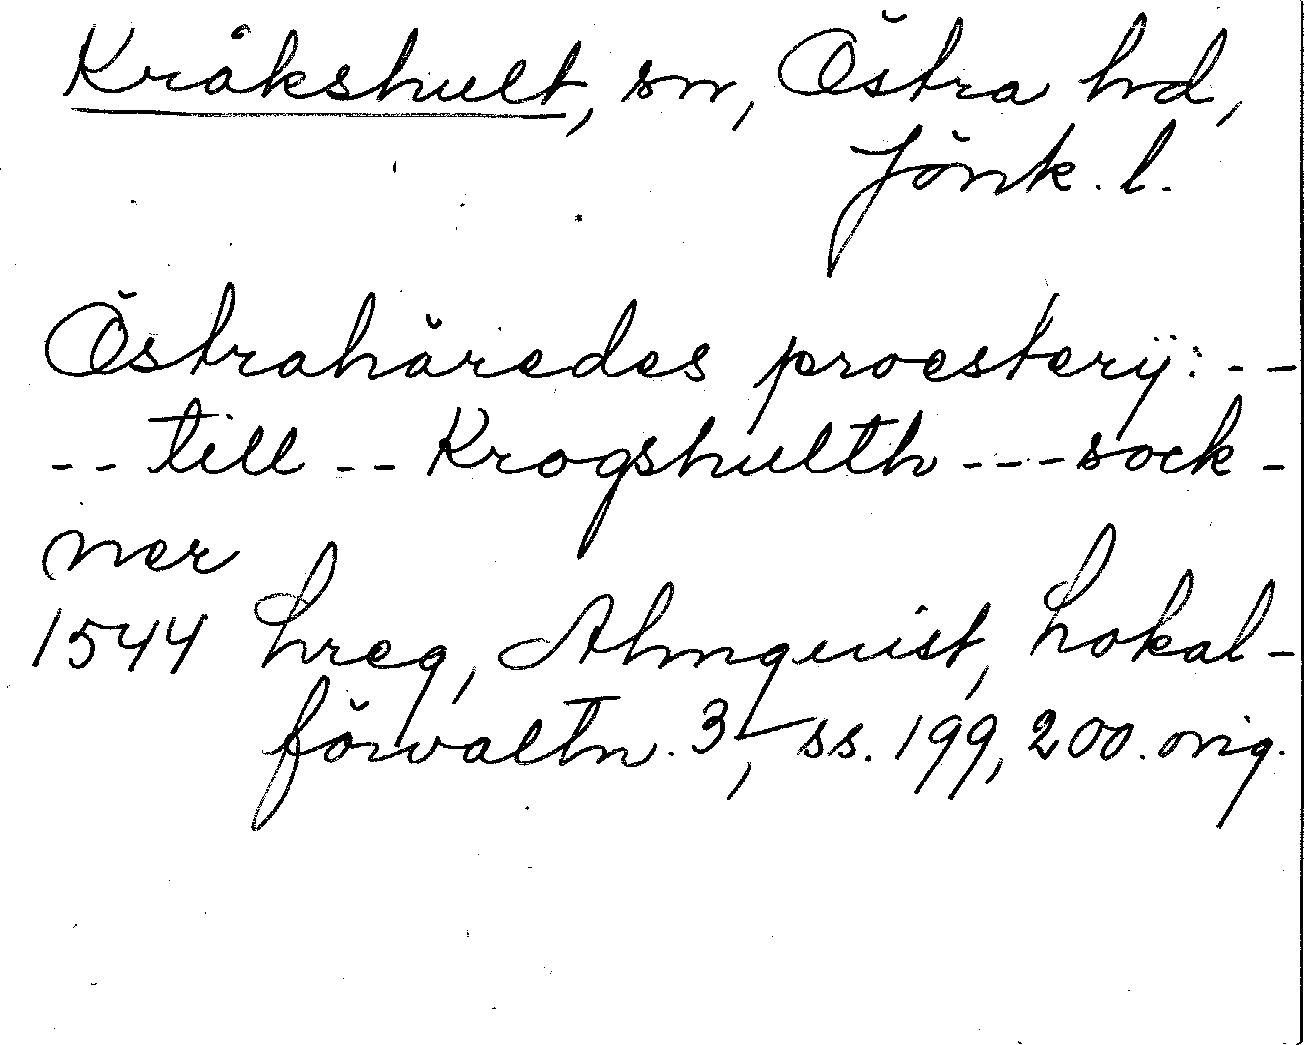 Kråkshult, sn, Östra hd,
Jönk. l.
Östrahäredes proesterÿ: --
-- till -- Krogshullth --- sock-
ner
1544 Lreg, Almquist, Lokal-
förvaltn. 3, ss. 199, 200. orig.